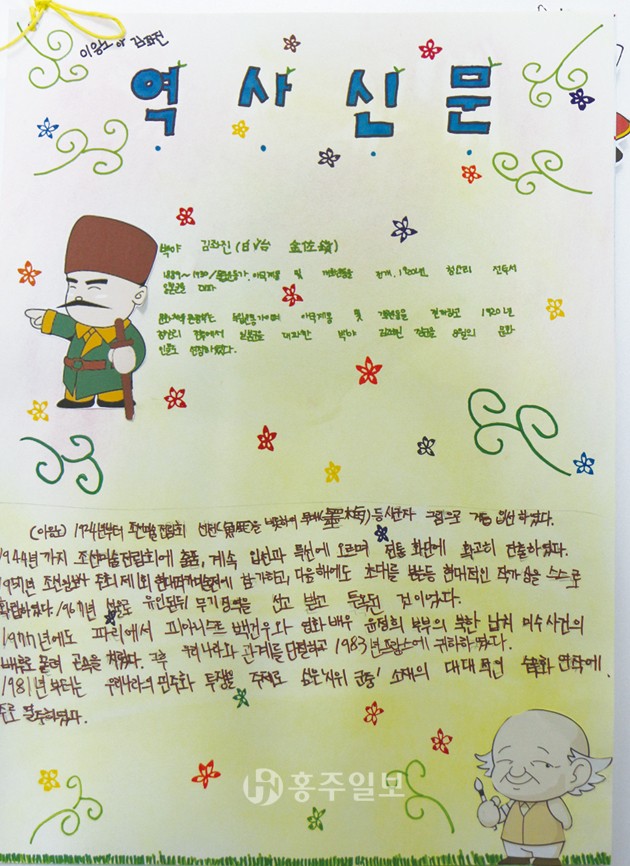 이응노 와 김좌진
역사신문
백야 김좌진(白冶 金佐鎭)
1889~1930/독립운동가. 애국계몽 및 전개. 1920년, 청산리 전투에서
일본군을
독립운동가이며 애국계몽 및 전개하고 1920년
청산리 전투에서 일본군을 대파한 백야 김좌진 장군을 문화
인물로 선정하였다.
(이응노) 1924년부터 조선미술전람회 등 사군자 그림으로 거듭 입선하였다.
1944년까지 조선미술전람회에 출품, 계속 입선과 특선에 오르며 전통 화단에 확고히 진출하였다.
1957년 조선일보사 주최 제1회 현대작가미술전에 참가하고, 다음해에도 초대를 받는등 현대적인 작가임을 스스로
확립하였다. 1967년 유인되어 무기징역을 선고 받고 것이었다.
1977년에도 파리에서 피아니스트 백건우와 영화배우 윤정희 부부의 북한 납치 미수사건의
배후로 몰려 곤욕을 치렀다. 그후 우리나라와 관계를 단절하고 1983년 프랑스에 귀화하였다.
1981년 부터는 우리나라의 민주화 투쟁을 주제로 삼은 '시위 군중' 소재의 대대적인 연작에
주로 열중하였다.
홍주일보